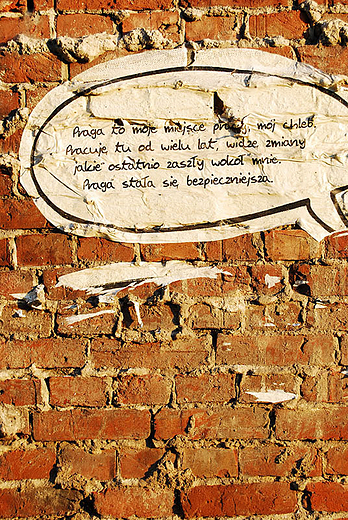 Praga to moje miejsce pracy, mój chleb.
Pracuję tu od wielu lat, widzę zmiany
jakie ostatnio zaszły wokół mnie.
Praga stała się bezpieczniejsza.